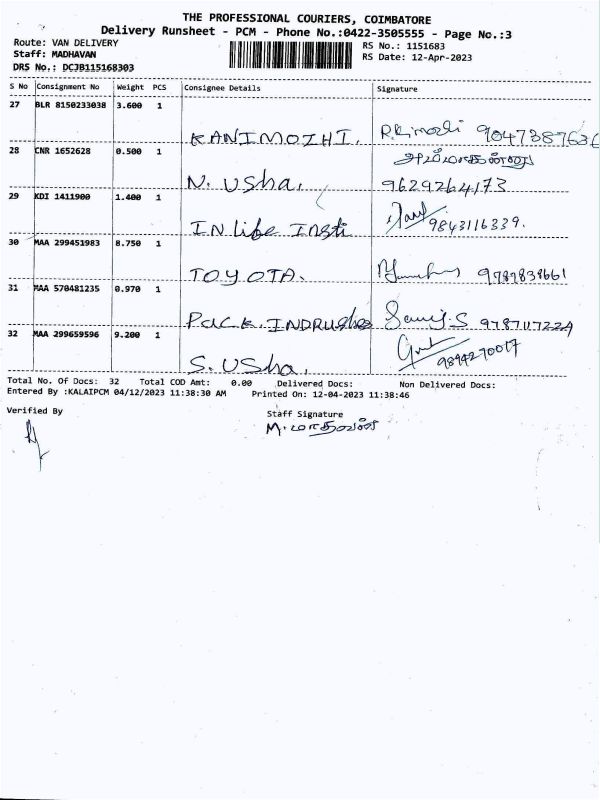 THE PROFESSIONAL COURIERS, COIMBATORE
Delivery Runsheet - PCM - Phone No.:0422-3505555 - Page No.:3
Route: VAN DELIVERY
Staff: MADHAVAN
DRS No.: DCJB115168303
RS No.: 1151683
RS Date: 12-Apr-2023
S No Consignment No Weight PCS Consignee Details Signature
27 BLR 8150233038 3.600 1
KANIMOZHI. 9047387636
28 CNR 1652628 0.500 1
N. Usha. 9629264173
29 KDI 1411900 1.400 1
IN Life Insti 9843116339.
30 MAA 299451983 8.750 1
TOYOTA. 9787838661
31 MAA 570481235 0.970 1
Pack. INDRUshes 9787117224
32 MAA 299659596 9.200 1
S. USha. 9894270017
Total No. Of Docs: 32 Total COD Amt: 0.00 Delivered Docs: Non Delivered Docs:
Entered By :KALAIPCM 04/12/2023 11:38:30 AM Printed On: 12-04-2023 11:38:46
Verified By Staff Signature
M. மாதவன்